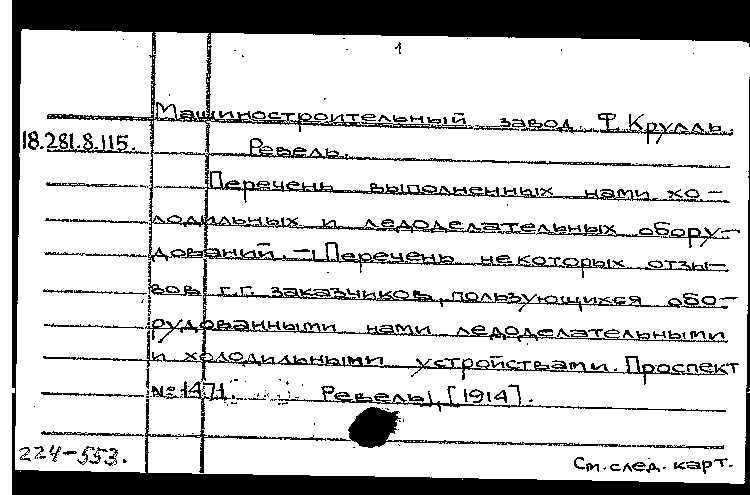 1
Машиностроительный завод. Ф. Крулль.
18.281.8.115.
Ревель.
Перечень выполненных нами хо-
лодильных и ледоделательных обору-
дований. – Перечень некоторых отзы-
вов г.г. заказчиков, пользующихся обо-
рудованными нами ледоделательными
и холодильными устройствами. Проспект
№ 1471. Ревель, [1914].
224-553.
См. след. карт.